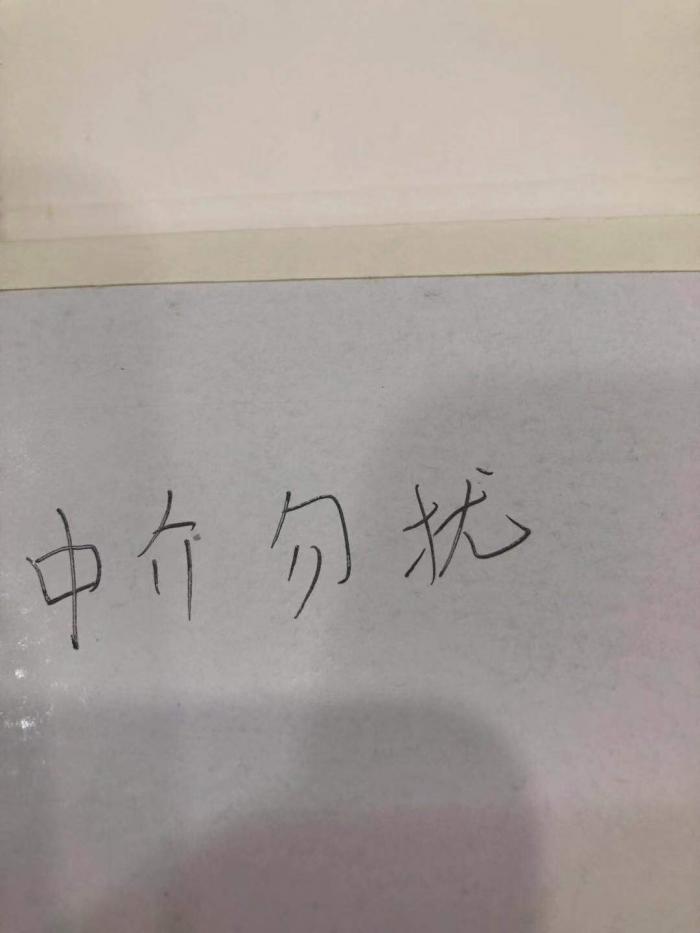 中介勿扰